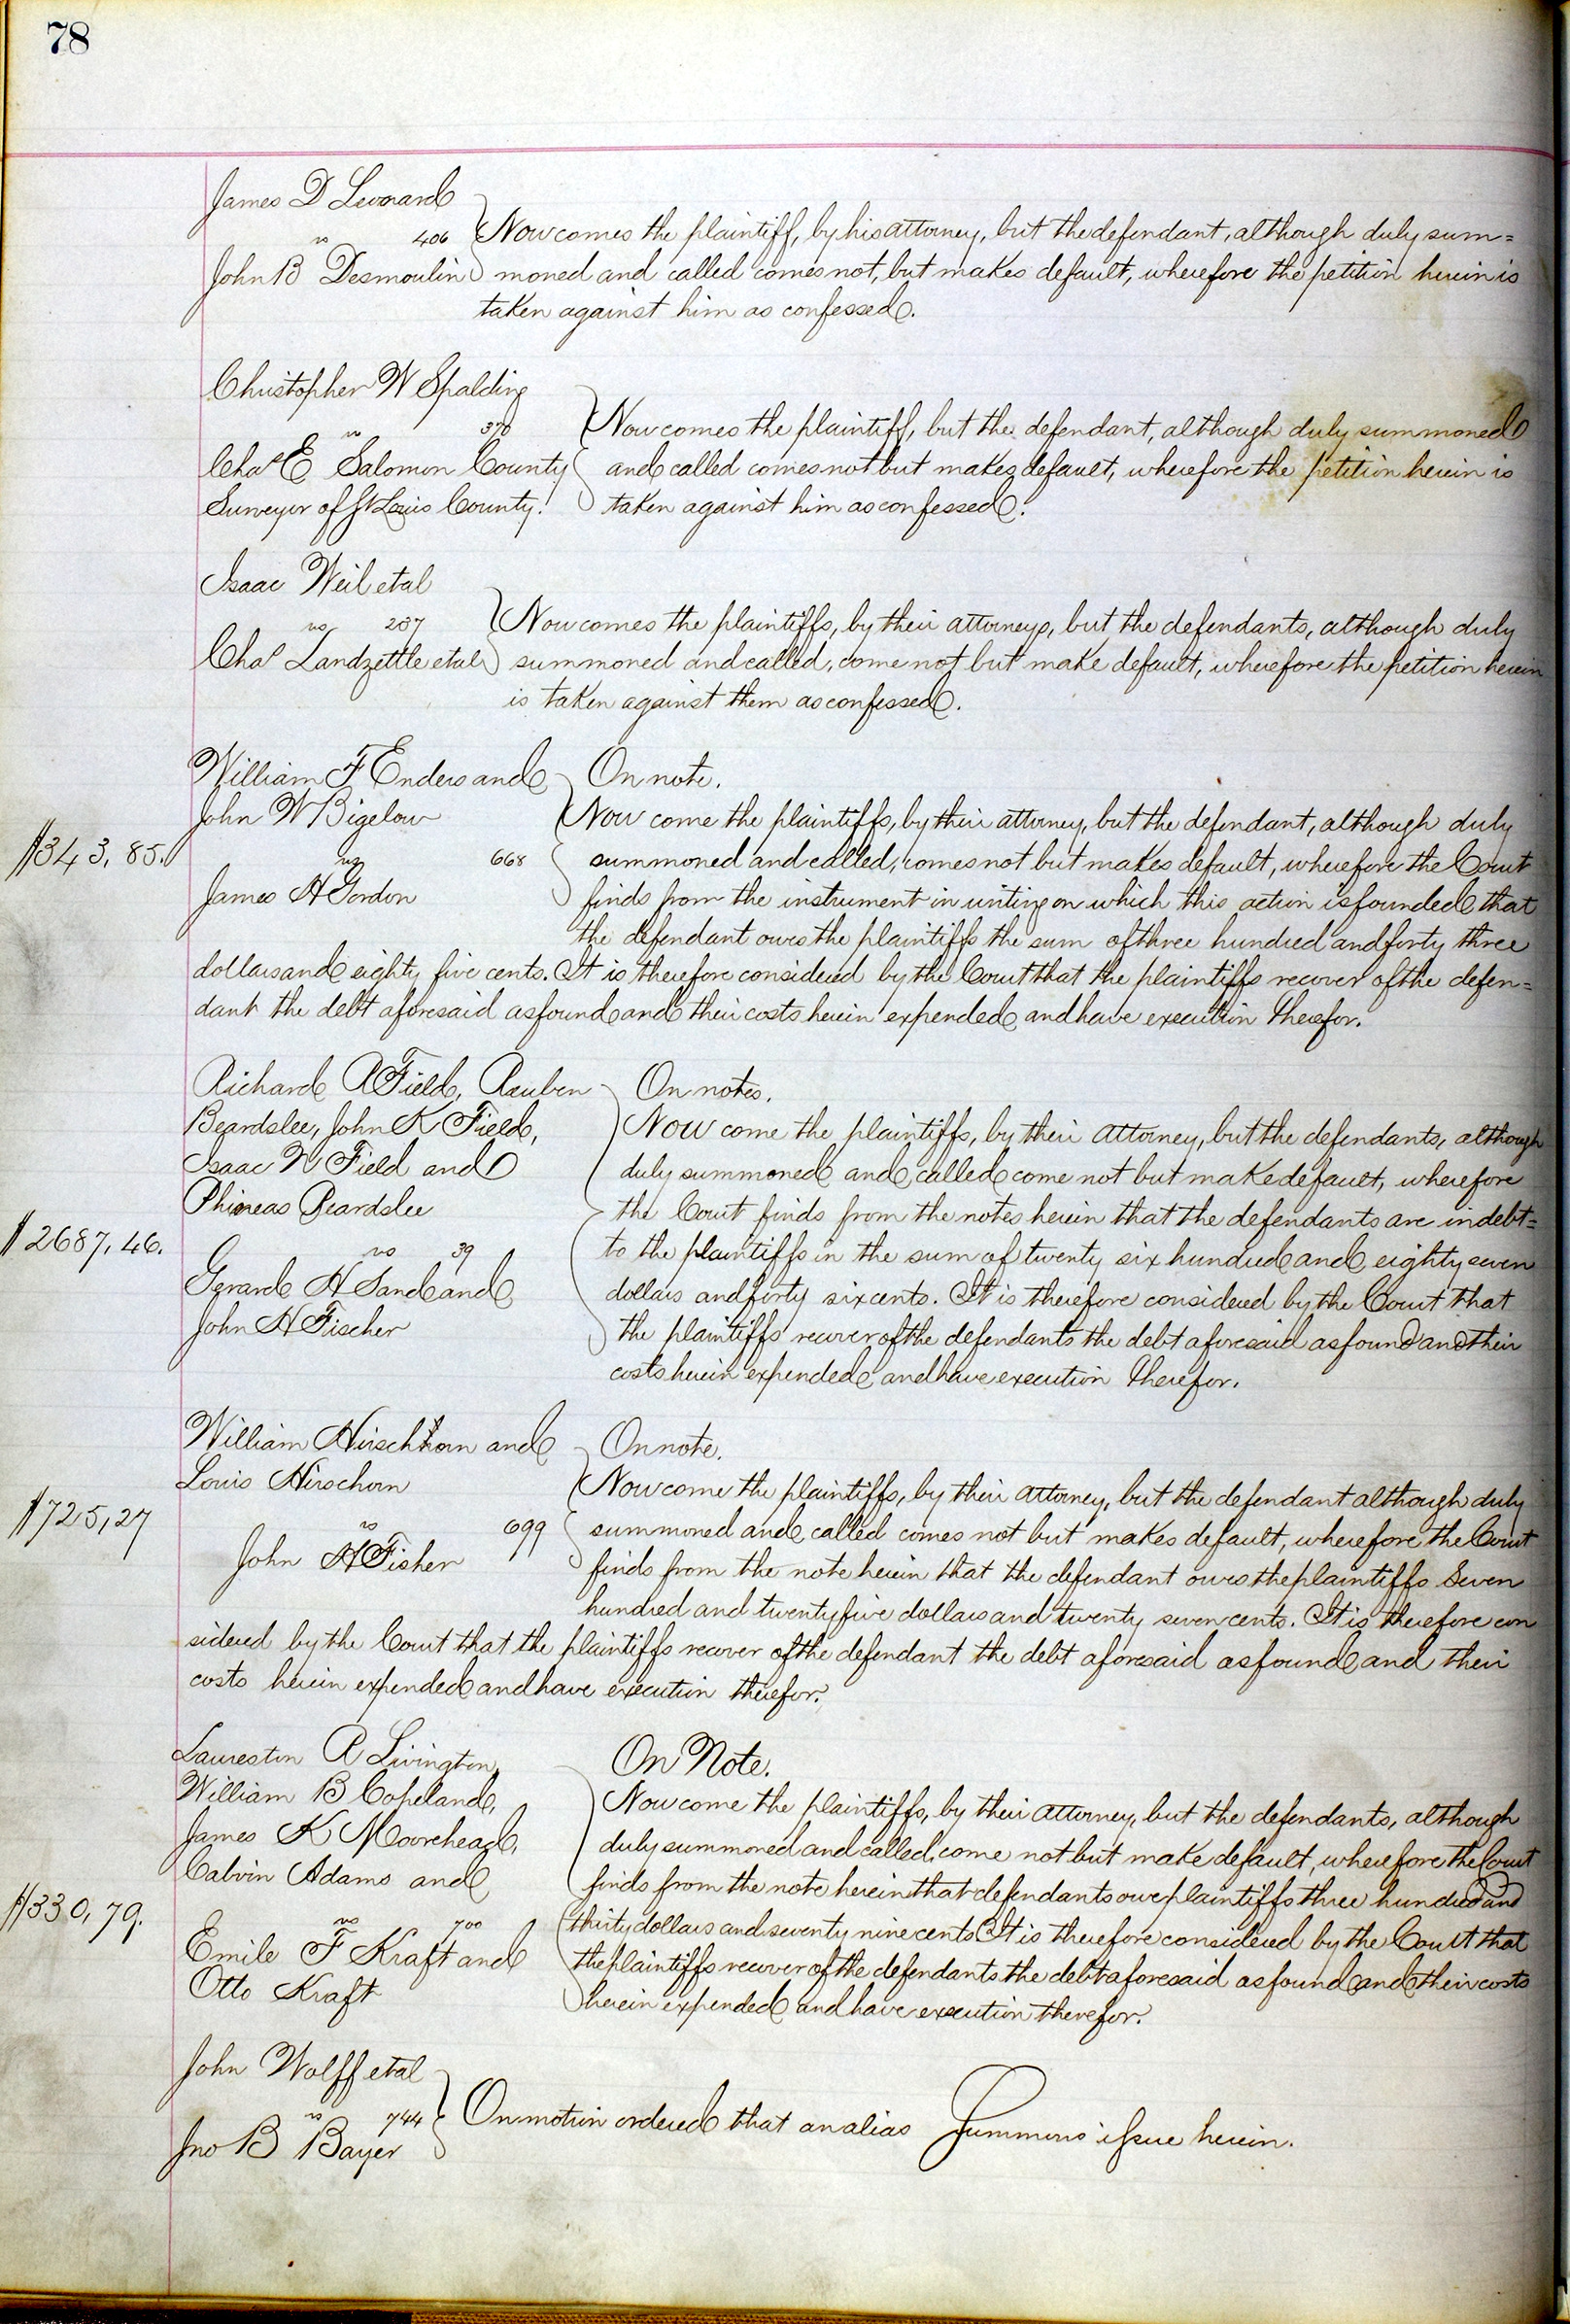 78
James D Leonard
vs 406
John B Desmoulin
Now comes the plaintiff, by his attorney, but the defendant, although duly sum=
moned and called comes not, but makes default, wherefore the petition herein is
taken against him as confessed.
Christopher W Spalding
vs 370
Chas E Salomon County
Surveyor of St Louis County.
Now comes the plaintiff, but the defendant, although duly summoned
and called comes not but makes default, wherefore the petition herein is
taken against him as confessed.
Isaac Weil et al
vs 287
Chas Landzettle et al
Now comes the plaintiffs, by their attorneys, but the defendants, although duly
summoned and called, come not but make default, wherefore the petition herein
is taken against them as confessed.
William F Enders and
John W Bigelow
$343,85.
vs 668
James H Gordon
On note.
Now come the plaintiffs, by their attorney, but the defendant, although duly
summoned and called, comes not but makes default, wherefore the Court
finds from the instrument in writing on which this action is founded that
the defendant owes the plaintiffs the sum of three hundred and forty three
dollars and eighty five cents. It is therefore considered by the Court that the plaintiffs recover of the defen=
dant the debt aforesaid as found and their costs herein expended and have execution therefor.
Richard A Field, Reuben
Beardslee, John K Field,
Isaac N Field and
Phineas Beardslee
$2687,46.
vs 39
Gerard H Sand and
John H Fischer
On notes.
Now come the plaintiffs, by their attorney, but the defendants, although
duly summoned and called come not but make default, wherefore
the Court finds from the notes herein that the defendants are indebt=
to the plaintiffs in the sum of twenty six hundred and eighty seven
dollars and forty six cents. It is therefore considered by the Court that
the plaintiffs recover of the defendants the debt aforesaid as found and their
costs herein expended and have execution therefor.
William Hirschhorn and
Louis Hirschorn
$725,27
vs 699
John H Fisher
On note.
Now come the plaintiffs, by their attorney, but the defendant although duly
summoned and called comes not but makes default, wherefore the Court
finds from the note herein that the defendant owes the plaintiffs Seven
hundred and twenty five dollars and twenty seven cents. It is therefore con
sidered by the Court that the plaintiffs recover of the defendant the debt aforesaid as found and their
costs herein expended and have execution therefor.
Laureston R Livington,
William B Copeland,
James K Moorehead,
Calvin Adams and
$330,79.
vs 700
Emile F Kraft and
Otto Kraft
On Note.
Now come the plaintiffs, by their attorney, but the defendants, although
duly summoned and called, come not but make default, wherefore the Court
finds from the note herein that defendants owe plaintiffs three hundred and
thirty dollars and seventy nine cents It is therefore considered by the Court that
the plaintiffs recover of the defendants the debt aforesaid as found and their costs
herein expended and have execution therefor.
John Wolff et al
vs 744
Jno B Bayer
On motion ordered that an alias Summons issue herein.